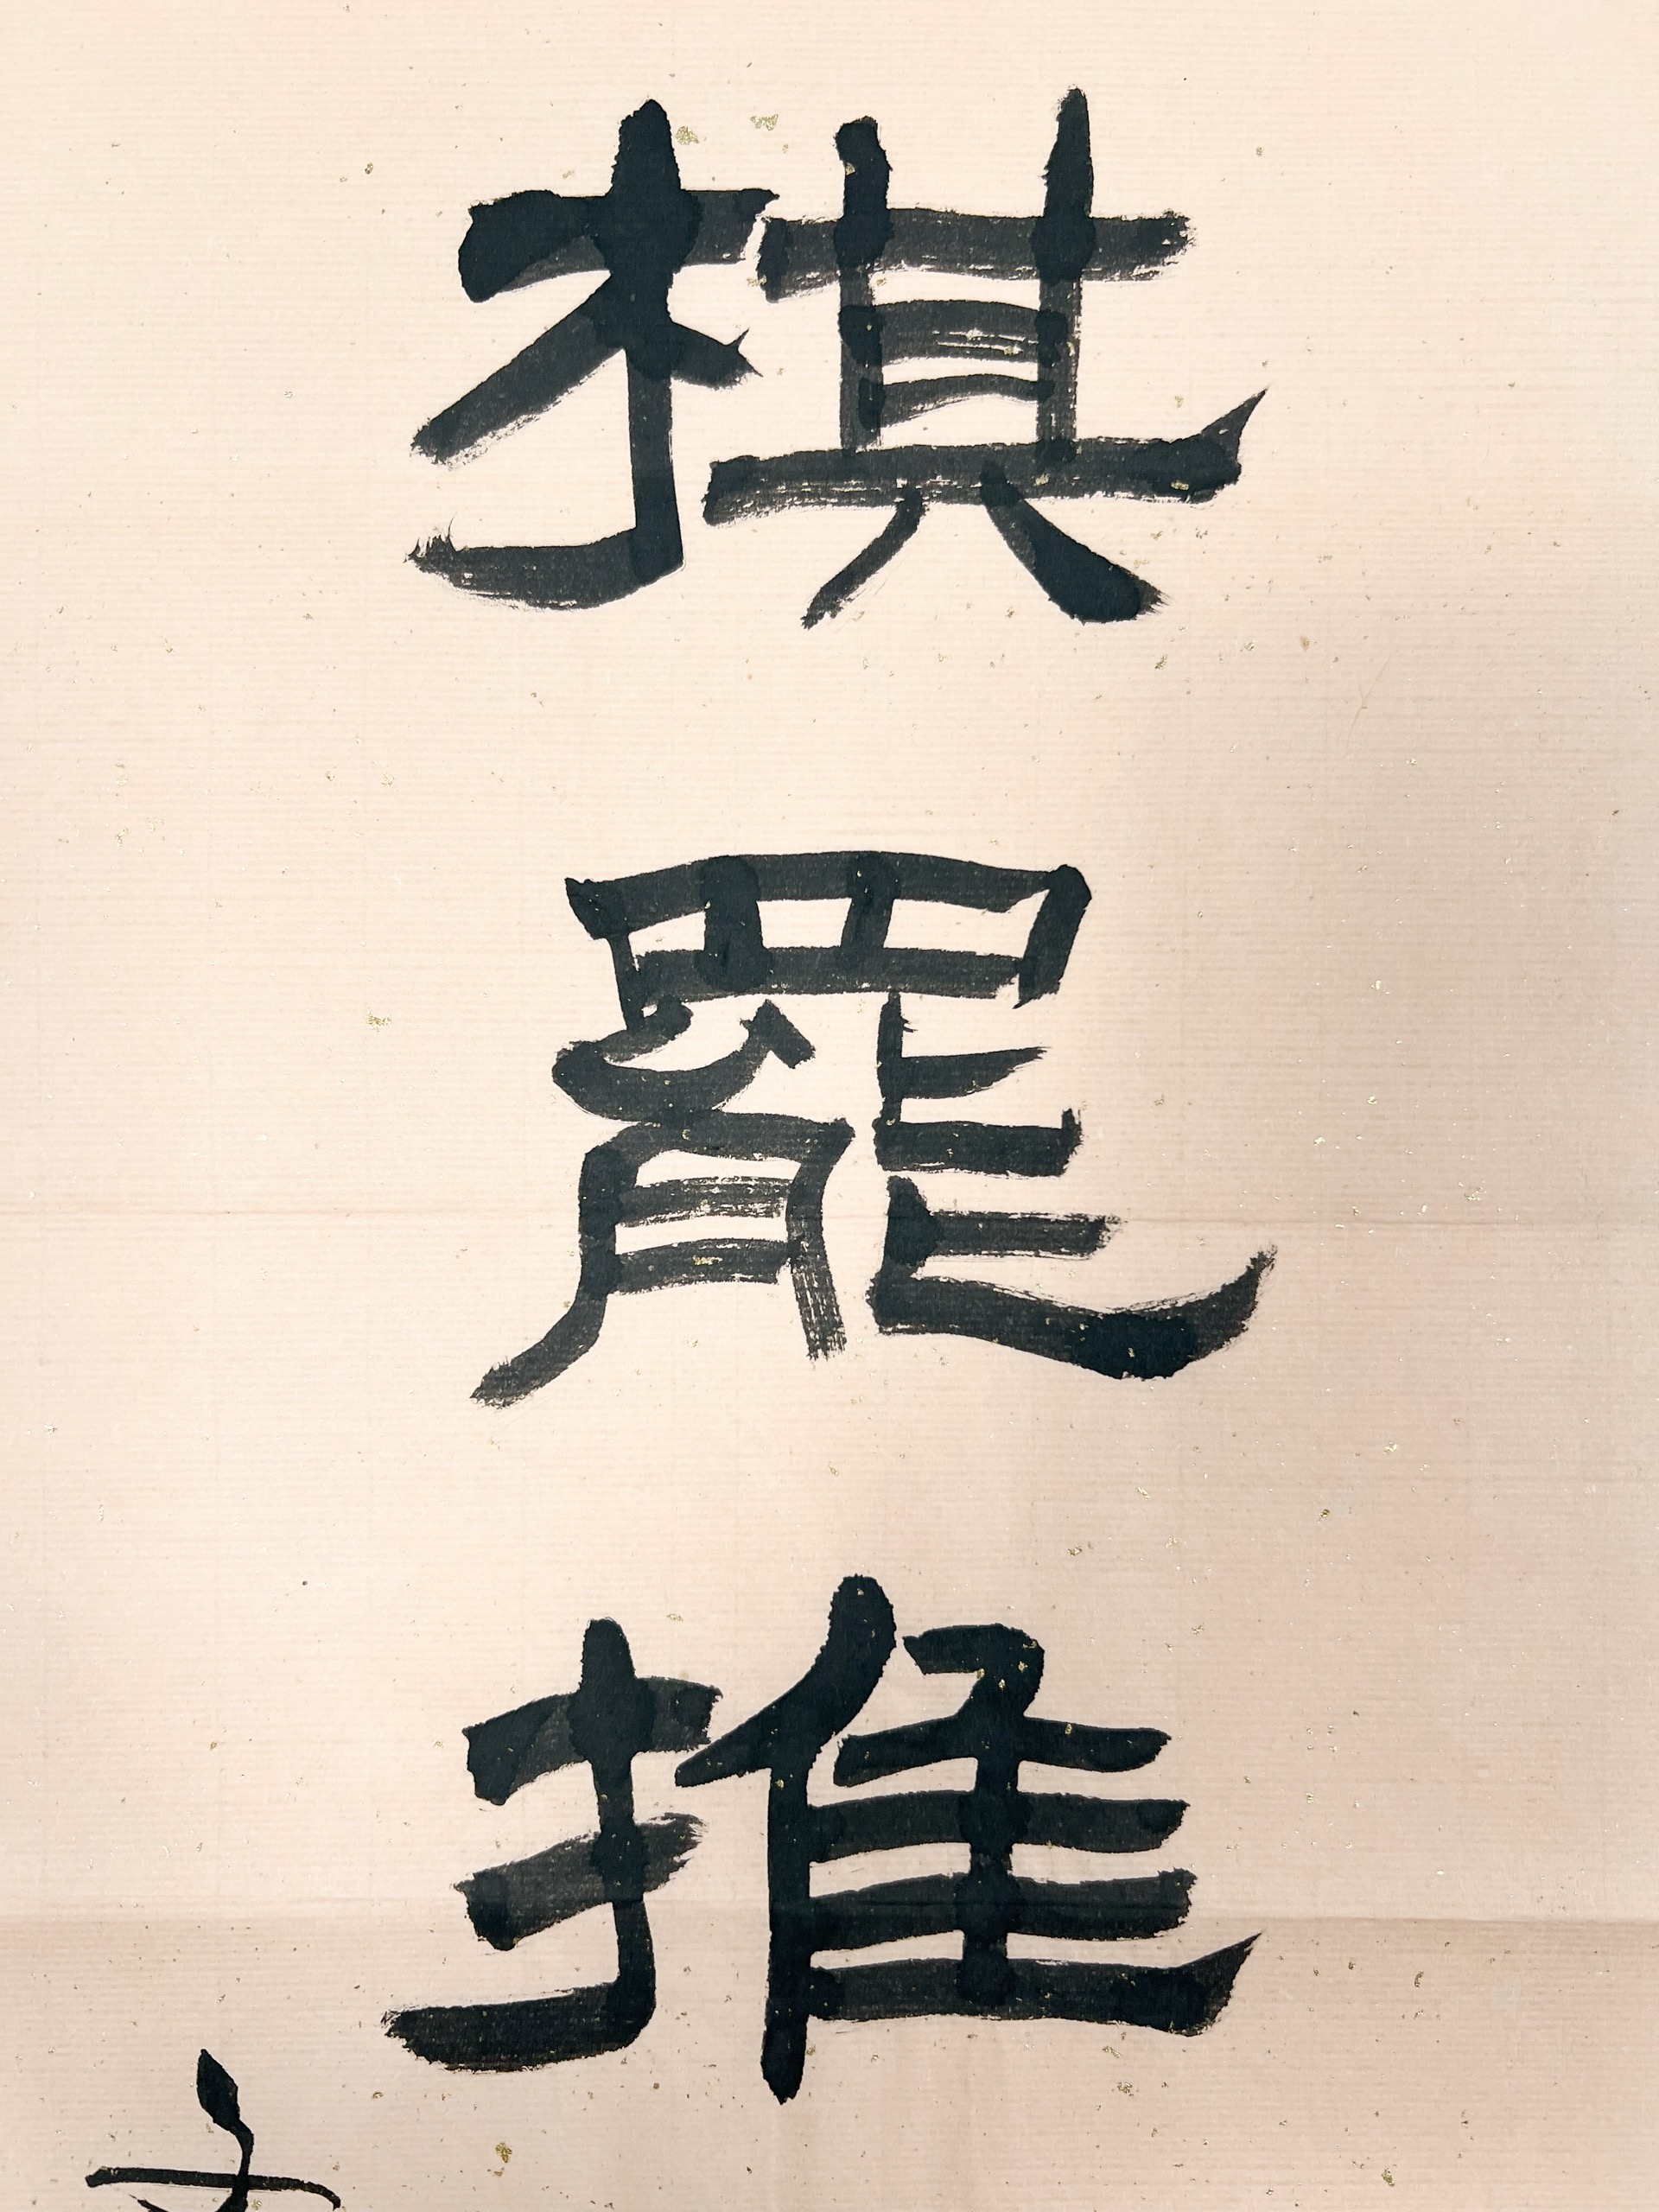 棋罷推